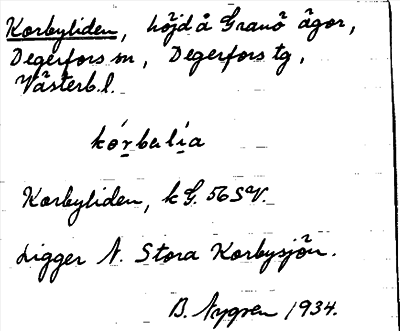 Korbyliden, höjd å Granö ägor,
Degerfors sn, Degerfors tg,
Västerb.l.
kórbalía
Korbyliden, k G. 56 SV.
Ligger N. Stora Korbysjön.
B. Nygren 1934.